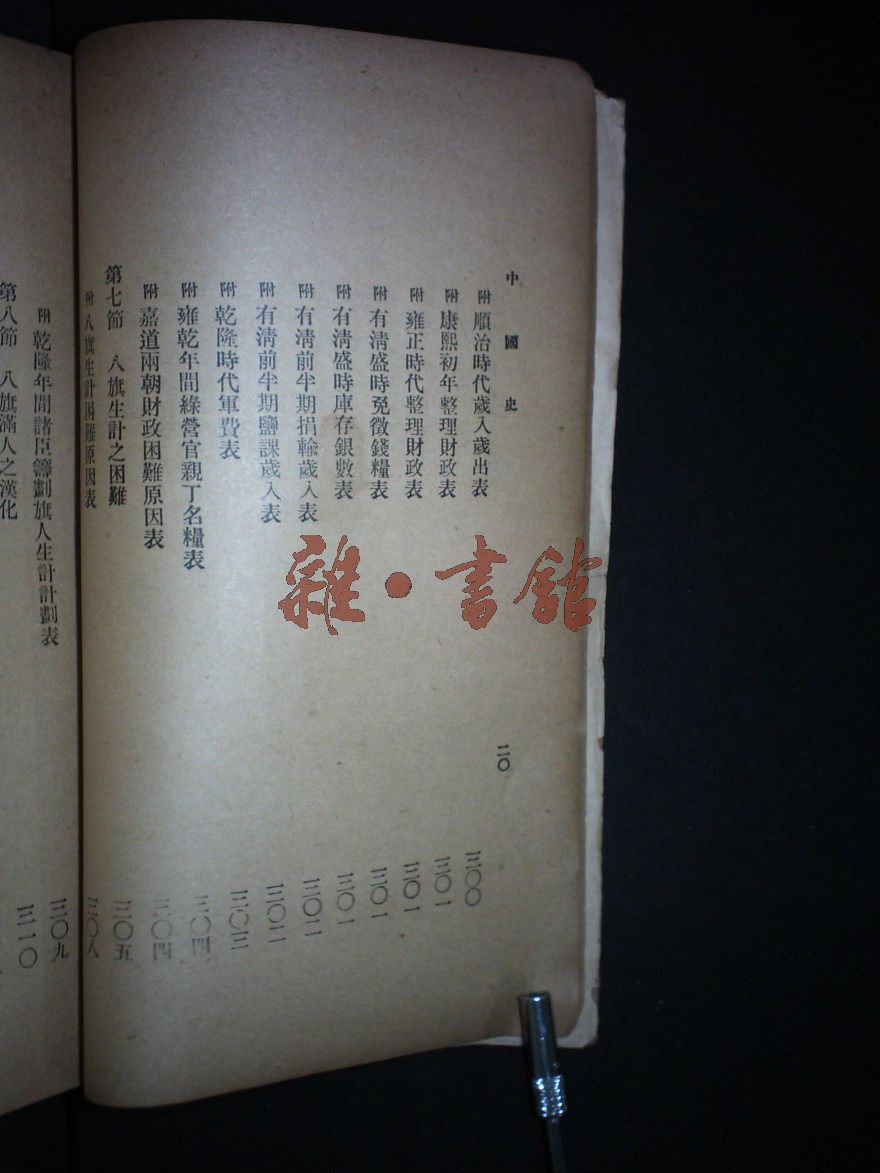 中國史
二〇
附 順治時代歲入歲出表 三〇〇
附 康熙初年整理財政表 三〇一
附 雍正時代整理財政表 三〇一
附 有清盛時免徵錢糧表 三〇一
附 有清盛時庫存銀數表 三〇一
附 有清前半期捐輸歲入表 三〇二
附 有清前半期鹽課歲入表 三〇二
附 乾隆時代軍費表 三〇三
附 雍乾年間綠營官親丁名糧表 三〇四
附 嘉道兩朝財政困難原因表 三〇四
第七節 八旗生計之困難 三〇五
附 八旗生計困難原因表 三〇八
附 乾隆年間諸臣籌劃旗人生計計劃表 三〇九
第八節 八旗滿人之漢化 三一〇
雜·書館